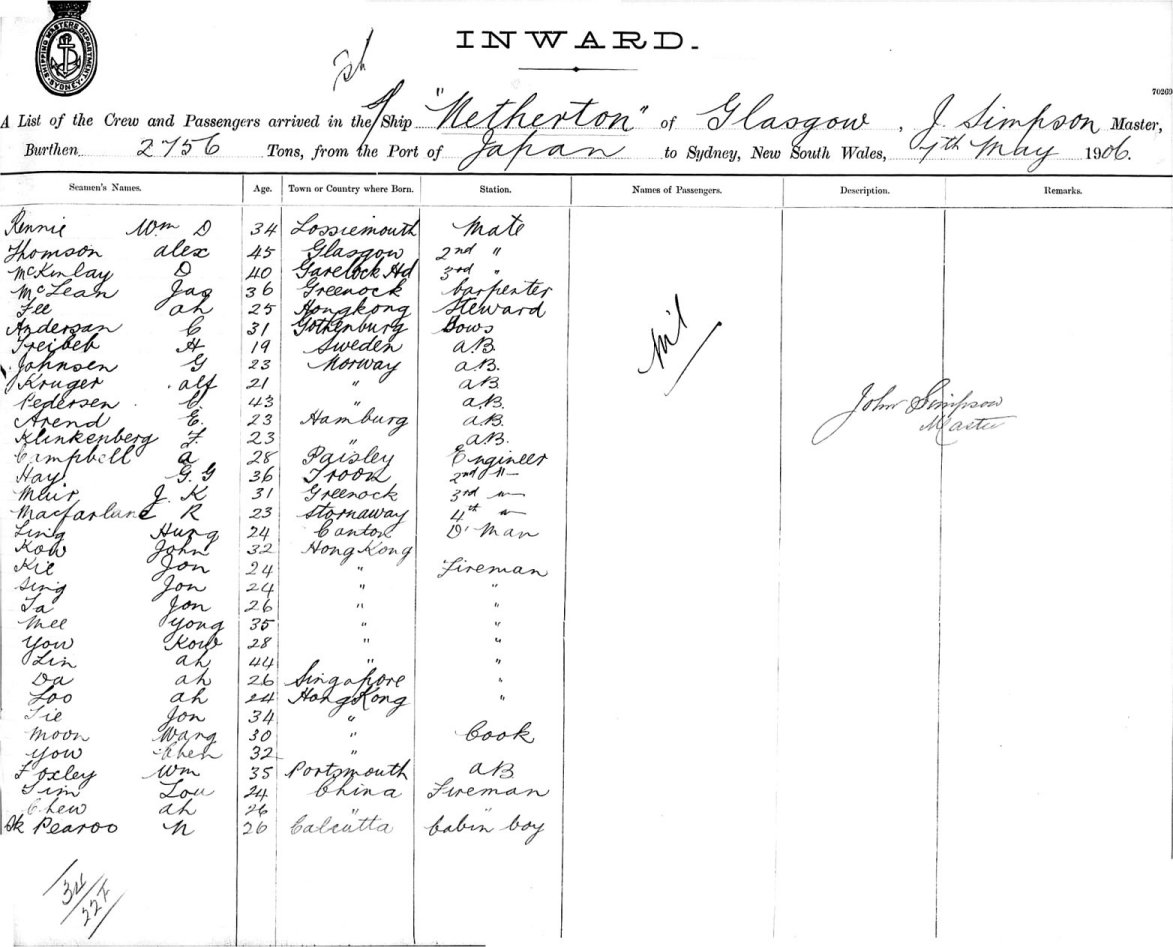 SHIPPING MASTERS DEPARTMENT SYDNEY
INWARD.
70269
A List of the Crew and Passengers arrived in the Ship "Netherton" of Glasgow, J. Simpson Master,
Burthen 2756 Tons, from the Port of Japan to Sydney, New South Wales, 7th May 1906.
Seamen's Names. Age. Town or Country where Born. Station. Names of Passengers. Description. Remarks.
Rennie Wm D 34 Lossiemouth Mate
Thomson Alex 45 Glasgow 2nd "
McKinlay D 40 Garelock Hd 3rd "
McLean Jas 36 Greenock Carpenter
Fee Ah 25 Hongkong Steward
Andersan C 31 Gothenburg
H 19 Sweden A.B.
Johnsen G 23 Norway A.B.
Kruger Alf 21 " AB
Pedersen C. 43 " A.B.
Arend E. 23 Hamburg A.B.
Klinkenberg F. 23 " AB.
Campbell A 28 Paisley Engineer
Hay G.G 36 Troon 2nd "
Muir J. K 31 Greenock 3rd "
Macfarlane R 23 Stornaway 4th "
Ling Hung 24 Canton D' Man
Kow John 32 Hong Kong
Kie Jon 24 " Fireman
Sing Jon 24 " "
Ta Jon 26 " "
Mee Yong 35 " "
You Kow 28 " "
Lin Ah 44 " "
Da Ah 26 Singapore "
Loo Ah 24 Hong Kong "
Jon 34 "
Moon Wang 30 " Cook
You Chen 32 "
Foxley Wm 35 Portsmouth AB
Lou 24 China Fireman
Chew Ah 26 " "
Sk Pearoo N 26 Calcutta Cabin boy
Nil
John Simpson
Master
34